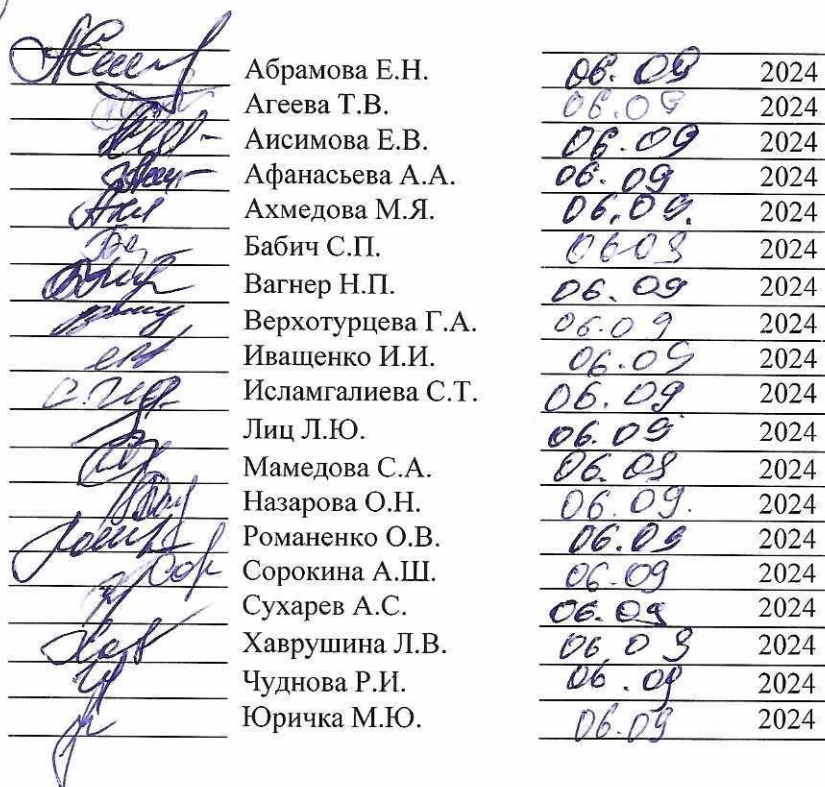 Абрамова Е.Н. 06.09 2024
Агеева Т.В. 06.09 2024
Аисимова Е.В. 06.09 2024
Афанасьева А.А. 06.09 2024
Ахмедова М.Я. 06.09. 2024
Бабич С.П. 06.09 2024
Вагнер Н.П. 06.09 2024
Верхотурцева Г.А. 06.09 2024
Иващенко И.И. 06.09 2024
Исламгалиева С.Т. 06.09 2024
Лиц Л.Ю. 06.09 2024
Мамедова С.А. 06.09 2024
Назарова О.Н. 06.09. 2024
Романенко О.В. 06.09 2024
Сорокина А.Ш. 06.09 2024
Сухарев А.С. 06.09 2024
Хаврушина Л.В. 06 09 2024
Чуднова Р.И. 06.09 2024
Юричка М.Ю. 06.09 2024